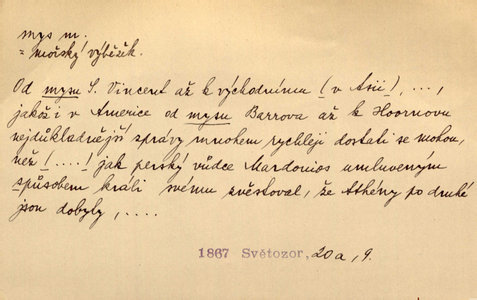 mys m.
= mořský výběžek.
Od mysu S. Vincent až k východnímu (v Asii), ...,
jakož i v Americe od mysu Barrova až k Hoornovu
nejdůkladnější správy mnohem rychleji dostati se mohou,
než (....) jak perský vůdce Mardonios umluveným
spůsobem králi svému zvěstoval, že Athény po druhé
jsou dobyly, ....
1867 Světozor, 20a, 9.